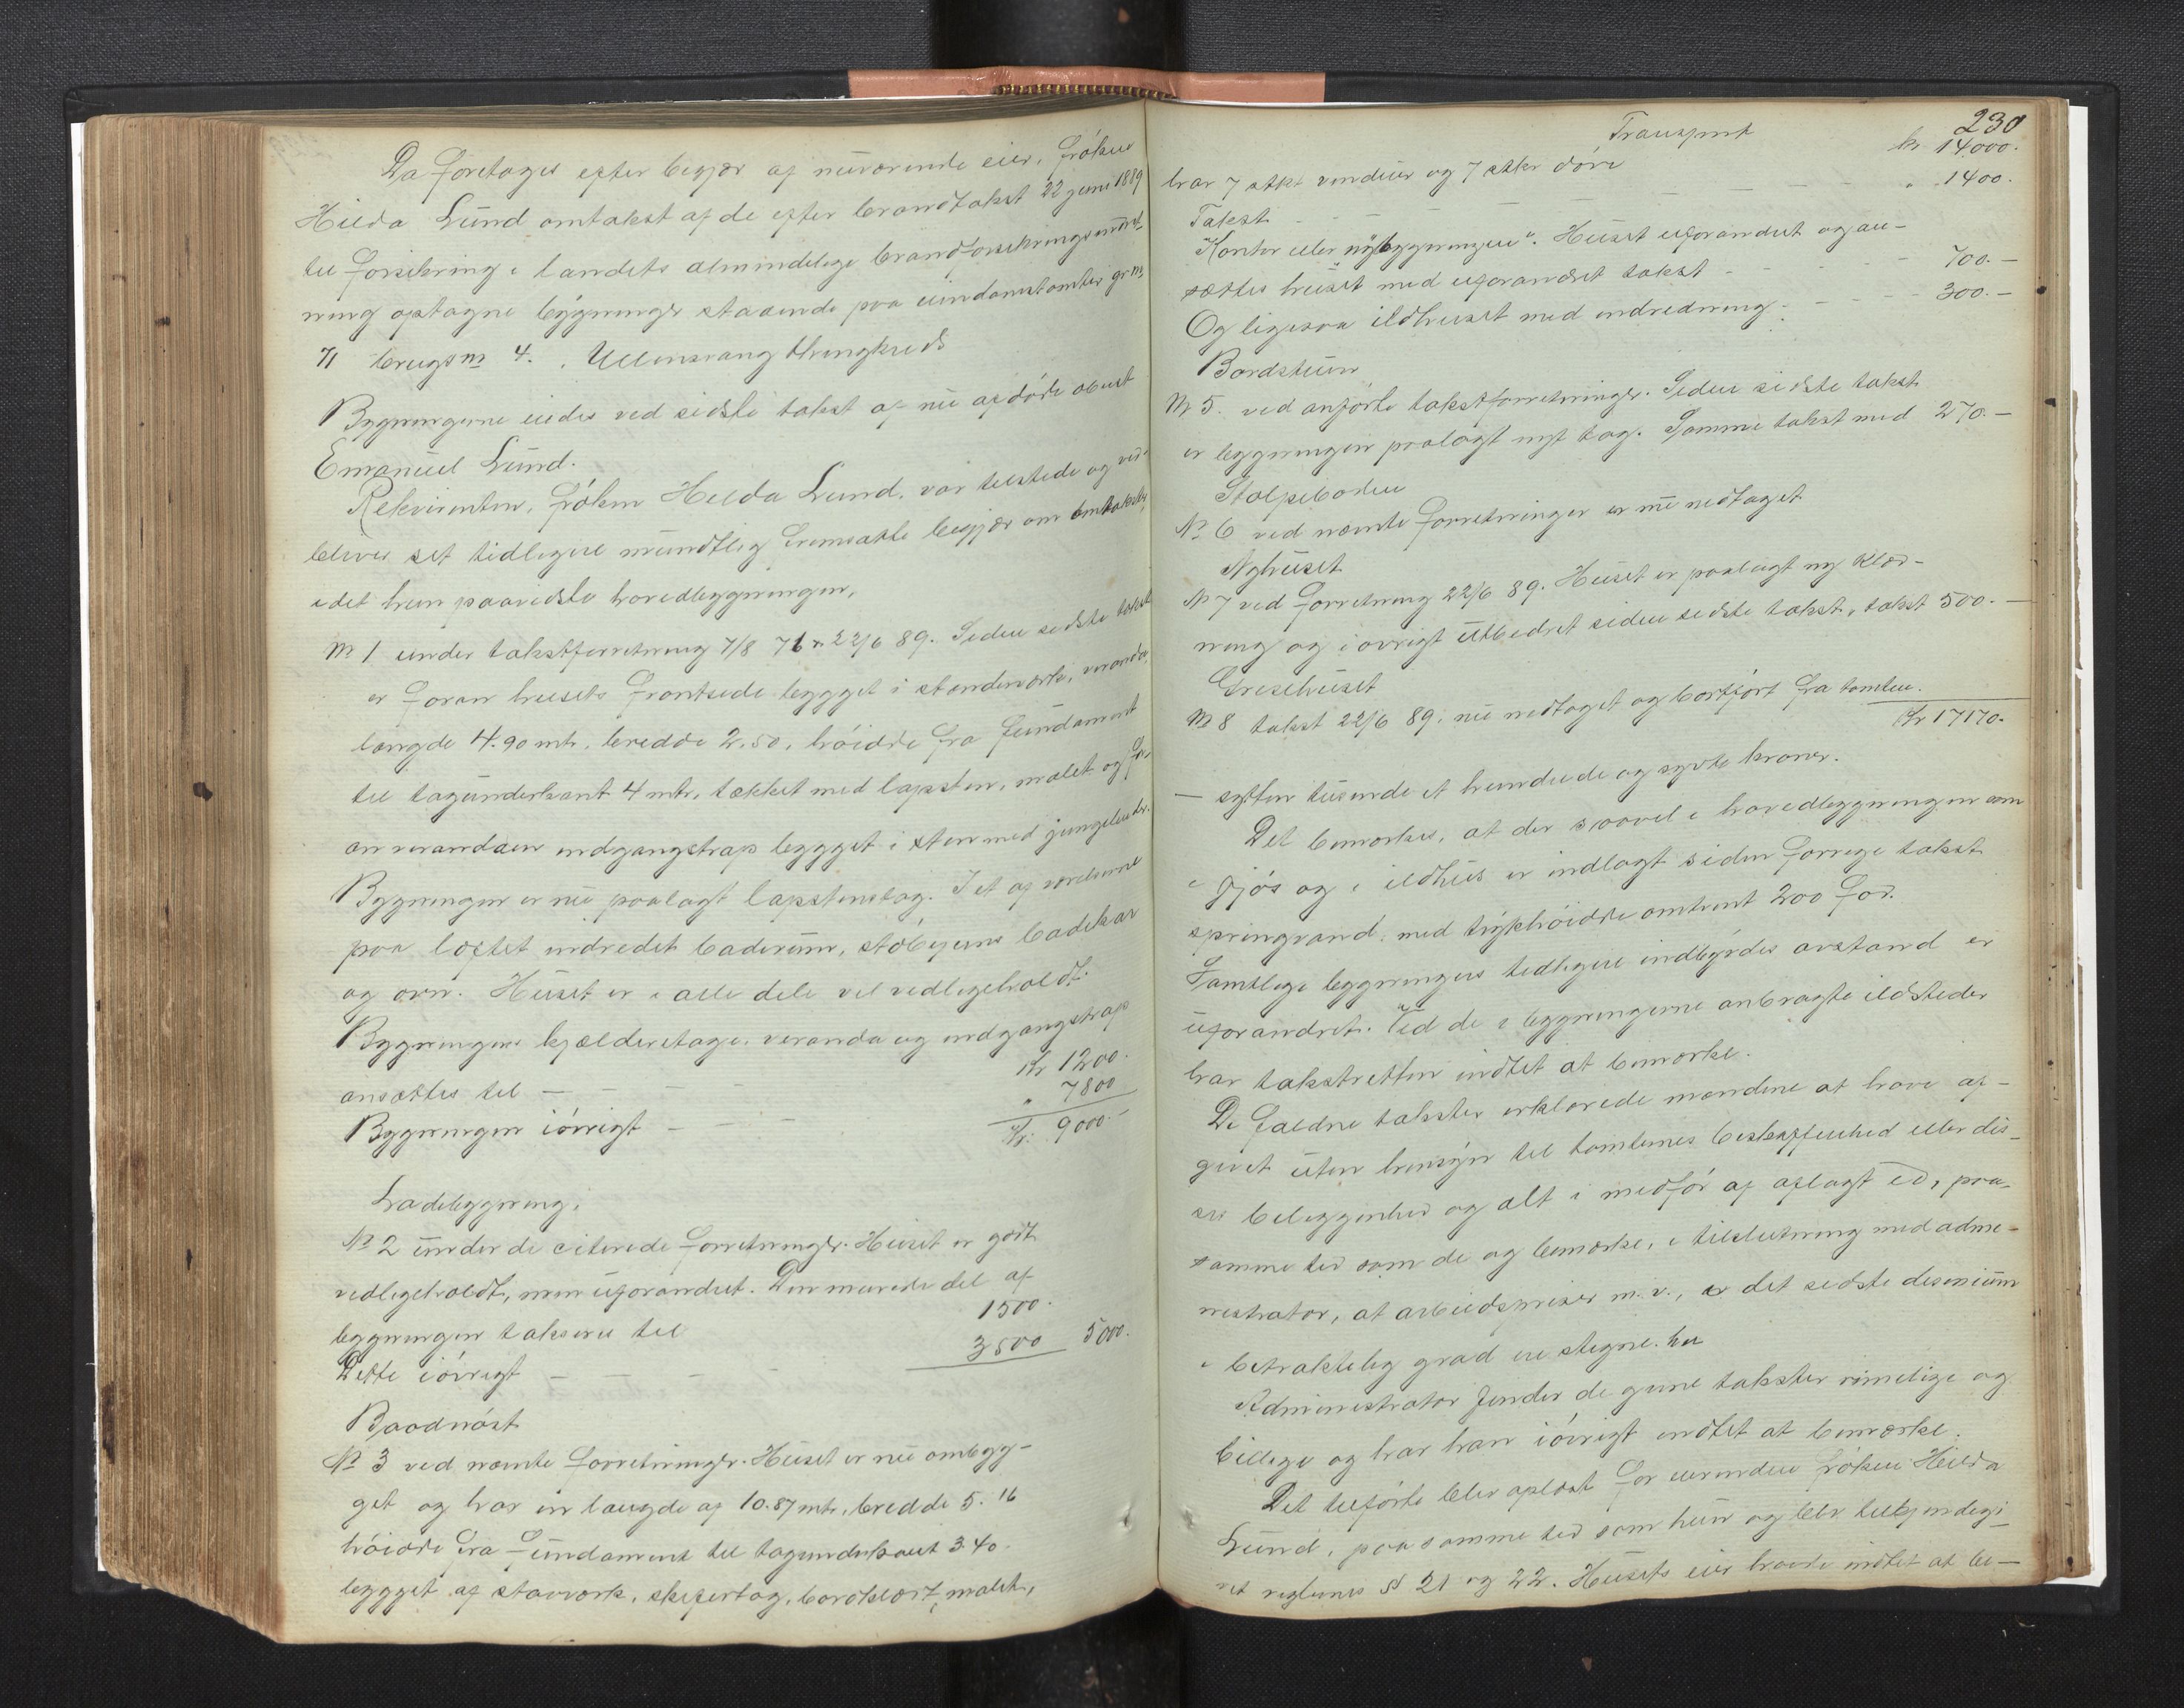 Da foretages efter begjær af nuværende eier, frøken
Hilda Lund omtakst af de efter brandtakst 22 juni 1889
til forsikring i landets almindelige brandforsikringsindret-
ning optagne bygninger staaende paa eiendomstomter grno
71 brugsno 4. Ullensvang thinglreds
Bygningerne eiedes ved sidste takst af nu afdøde oberst
Emanuel Lund.
Rekvirenten, frøken Hilda Lund, var tilstede og ved-
blever sit tidligere mundtlig fremsatte begjær om omtakst,
idet hun paaviste hovedbygningen,
No 1 under takstforretning 7/8 76 22/6 89. Siden sidste takst
er foran husets frontside bygget i stenderværk, veranda,
længde 4.90 mtr, bredde 2.50, høidde fra fundament
til tagunderkant 4 mtr, tækket med lapsten, malet og for-
an verandaen indgangstrap bygget i sten med
Bygningen er nu paalagt lapstenstag. I et af værelserne
paa loftet indredet baderum, støbejerns badekar
og ovn. Huset er i alle dele vel vedligeholdt.
Bygningens kjælderetage, veranda og indgangstrap
ansættes til — Kr 1200.
Bygningen iøvrigt — " 7800
Kr. 9000.—
Ladebygning,
No 2 under de citerede forretninger. Huset er godt
vedligeholdt, men uforandret. Den murede del af
bygningen takseres til 1500.
Dette iøvrigt — 3500 5000.
Baadnøst
No 3 ved nævnte forretninger. Huset er nu ombyg-
get og har en længde af 10.87 mtr, bredde 5.16
høidde fra fundament til tagunderkant 3.40.
bygget af stavværk, skifertag, bordklædt, malet,
230
Transport kr 14000.
har 7 stkr vinduer og 7 stkr døre
Takst — " 1400.
Kontor eller "nybygningen". Huset uforandret og an-
sættes huset med uforandret takst — 700.—
Og ligesaa ildhuset med indredning — 300.—
Bordstuen
No 5. ved anførte takstforretninger. Siden sidste takst
er bygningen paalagt nyt tag. Samme takst med 270.—
Stolpeboden
No 6 ved nævnte forretninger er nu nedtaget
Nyhuset
No 7 ved forretning 22/6 89. Huset er paalagt ny klæd-
ning og iøvrigt utbedret siden sidste takst, takst 500.—
Grisehuset
No 8 takst 22/6 89, nu nedtaget og bortført fra tomten.
Kr 17170.
— sytten tusinde et hundrede og sytti kroner.
Det bemærkes, at der saavel i hovedbygningen som
i fjøs og i ildhus er indlagt siden forrige takst
springvand, med trykhøidde omtrent 200 fod.
Samtlige bygningers tidligere indbyrdes avstand er
uforandret. Ved de i bygningerne anbragte ildsteder
har takstretten indtet at bemærke.
De faldne takster erklærede mændene at have af-
givet uten hensyn til tomternes beskaffenhed eller dis-
ses beliggenhed og alt i medfør af aflagt ed, paa
samme tid som de og bemærke, i tilslutning med admi-
nistrator, at arbeidspriser m.v., er det sidste desenium
i betraktelig grad ere stegne. her
Administrator finder de givne takster rimelige og
billige og har han iøvrigt indtet at bemærke.
Det tilførte blev oplæst for eierinden frøken Hilda
Lund, paa samme tid som hun og blev tilkjendegi-
vet reglernes §§ 21 og 22. Husets eier havde indtet at be—